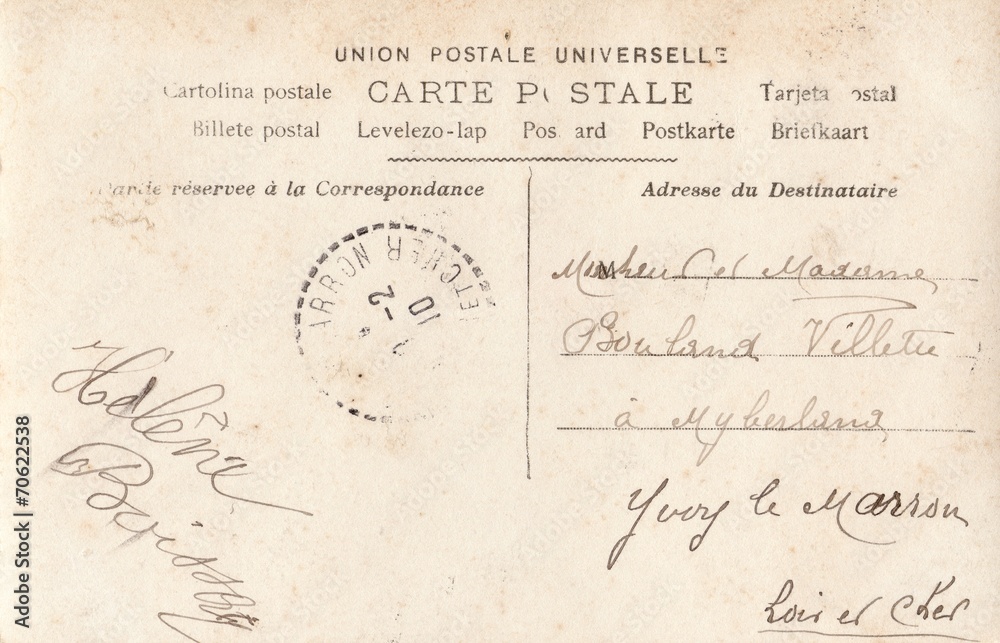 UNION POSTALE UNIVERSELLE
Cartolina postale CARTE POSTALE Tarjeta postal
Billete postal Levelezo-lap Pos ard Postkarte Briefkaart
Partie réservée à la Correspondance
Adresse du Destinataire
ARRON ET CHER
10 -2
Monsieur et Madame
Bouland Villette
à Myberland
Yvoy le Marron
Loir et Cher
Hélène
Adobe Stock | #70622538